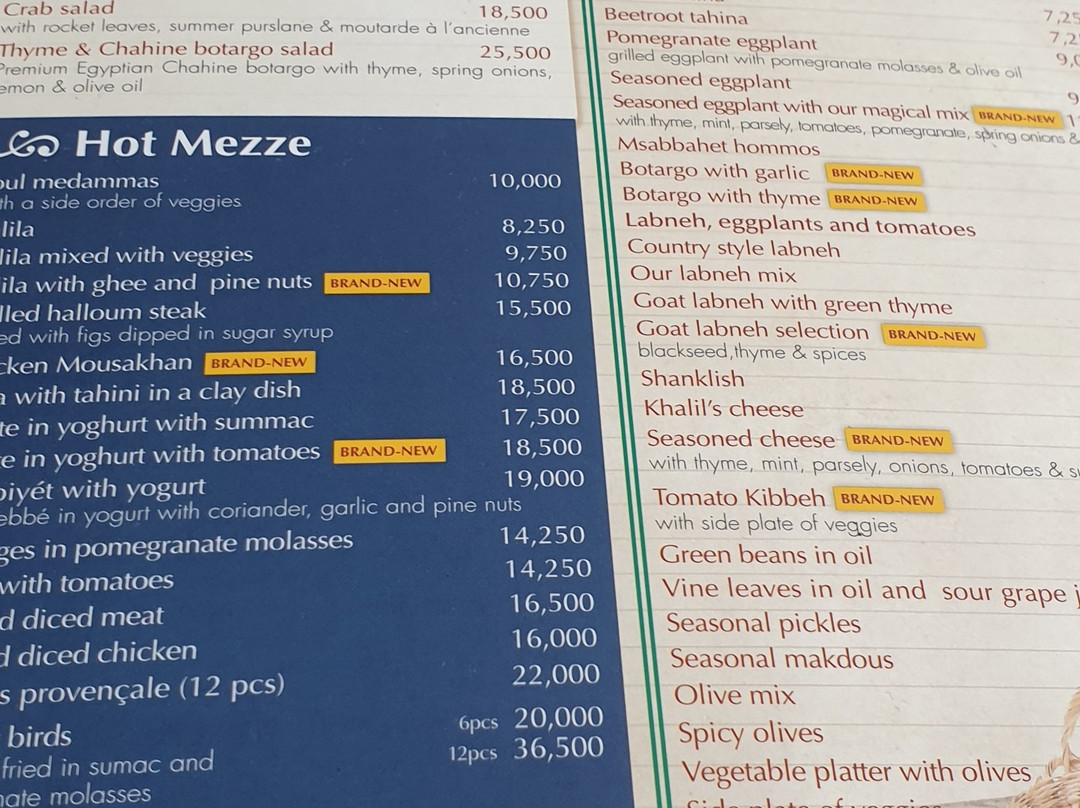 Crab salad 18,500
with rocket leaves, summer purslane & moutarde à l'ancienne
Thyme & Chahine botargo salad 25,500
Premium Egyptian Chahine botargo with thyme, spring onions,
emon & olive oil
Hot Mezze
oul medammas 10,000
th a side order of veggies
lila 8,250
lila mixed with veggies 9,750
ila with ghee and pine nuts BRAND-NEW 10,750
lled halloum steak 15,500
ed with figs dipped in sugar syrup
cken Mousakhan BRAND-NEW 16,500
a with tahini in a clay dish 18,500
te in yoghurt with summac 17,500
te in yoghurt with tomatoes BRAND-NEW 18,500
biyét with yogurt 19,000
ebbé in yogurt with coriander, garlic and pine nuts
ges in pomegranate molasses 14,250
with tomatoes 14,250
d diced meat 16,500
d diced chicken 16,000
s provençale (12 pcs) 22,000
birds 6pcs 20,000
12pcs 36,500
fried in sumac and
nate molasses
Beetroot tahina 7,25
Pomegranate eggplant 7,2
grilled eggplant with pomegranate molasses & olive oil 9,0
Seasoned eggplant 9
Seasoned eggplant with our magical mix BRAND-NEW 1
with thyme, mint, parsely, tomatoes, pomegranate, spring onions &
Msabbahet hommos
Botargo with garlic BRAND-NEW
Botargo with thyme BRAND-NEW
Labneh, eggplants and tomatoes
Country style labneh
Our labneh mix
Goat labneh with green thyme
Goat labneh selection BRAND-NEW
blackseed,thyme & spices
Shanklish
Khalil's cheese
Seasoned cheese BRAND-NEW
with thyme, mint, parsely, onions, tomatoes & s
Tomato Kibbeh BRAND-NEW
with side plate of veggies
Green beans in oil
Vine leaves in oil and sour grape j
Seasonal pickles
Seasonal makdous
Olive mix
Spicy olives
Vegetable platter with olives
Side plate of veggies